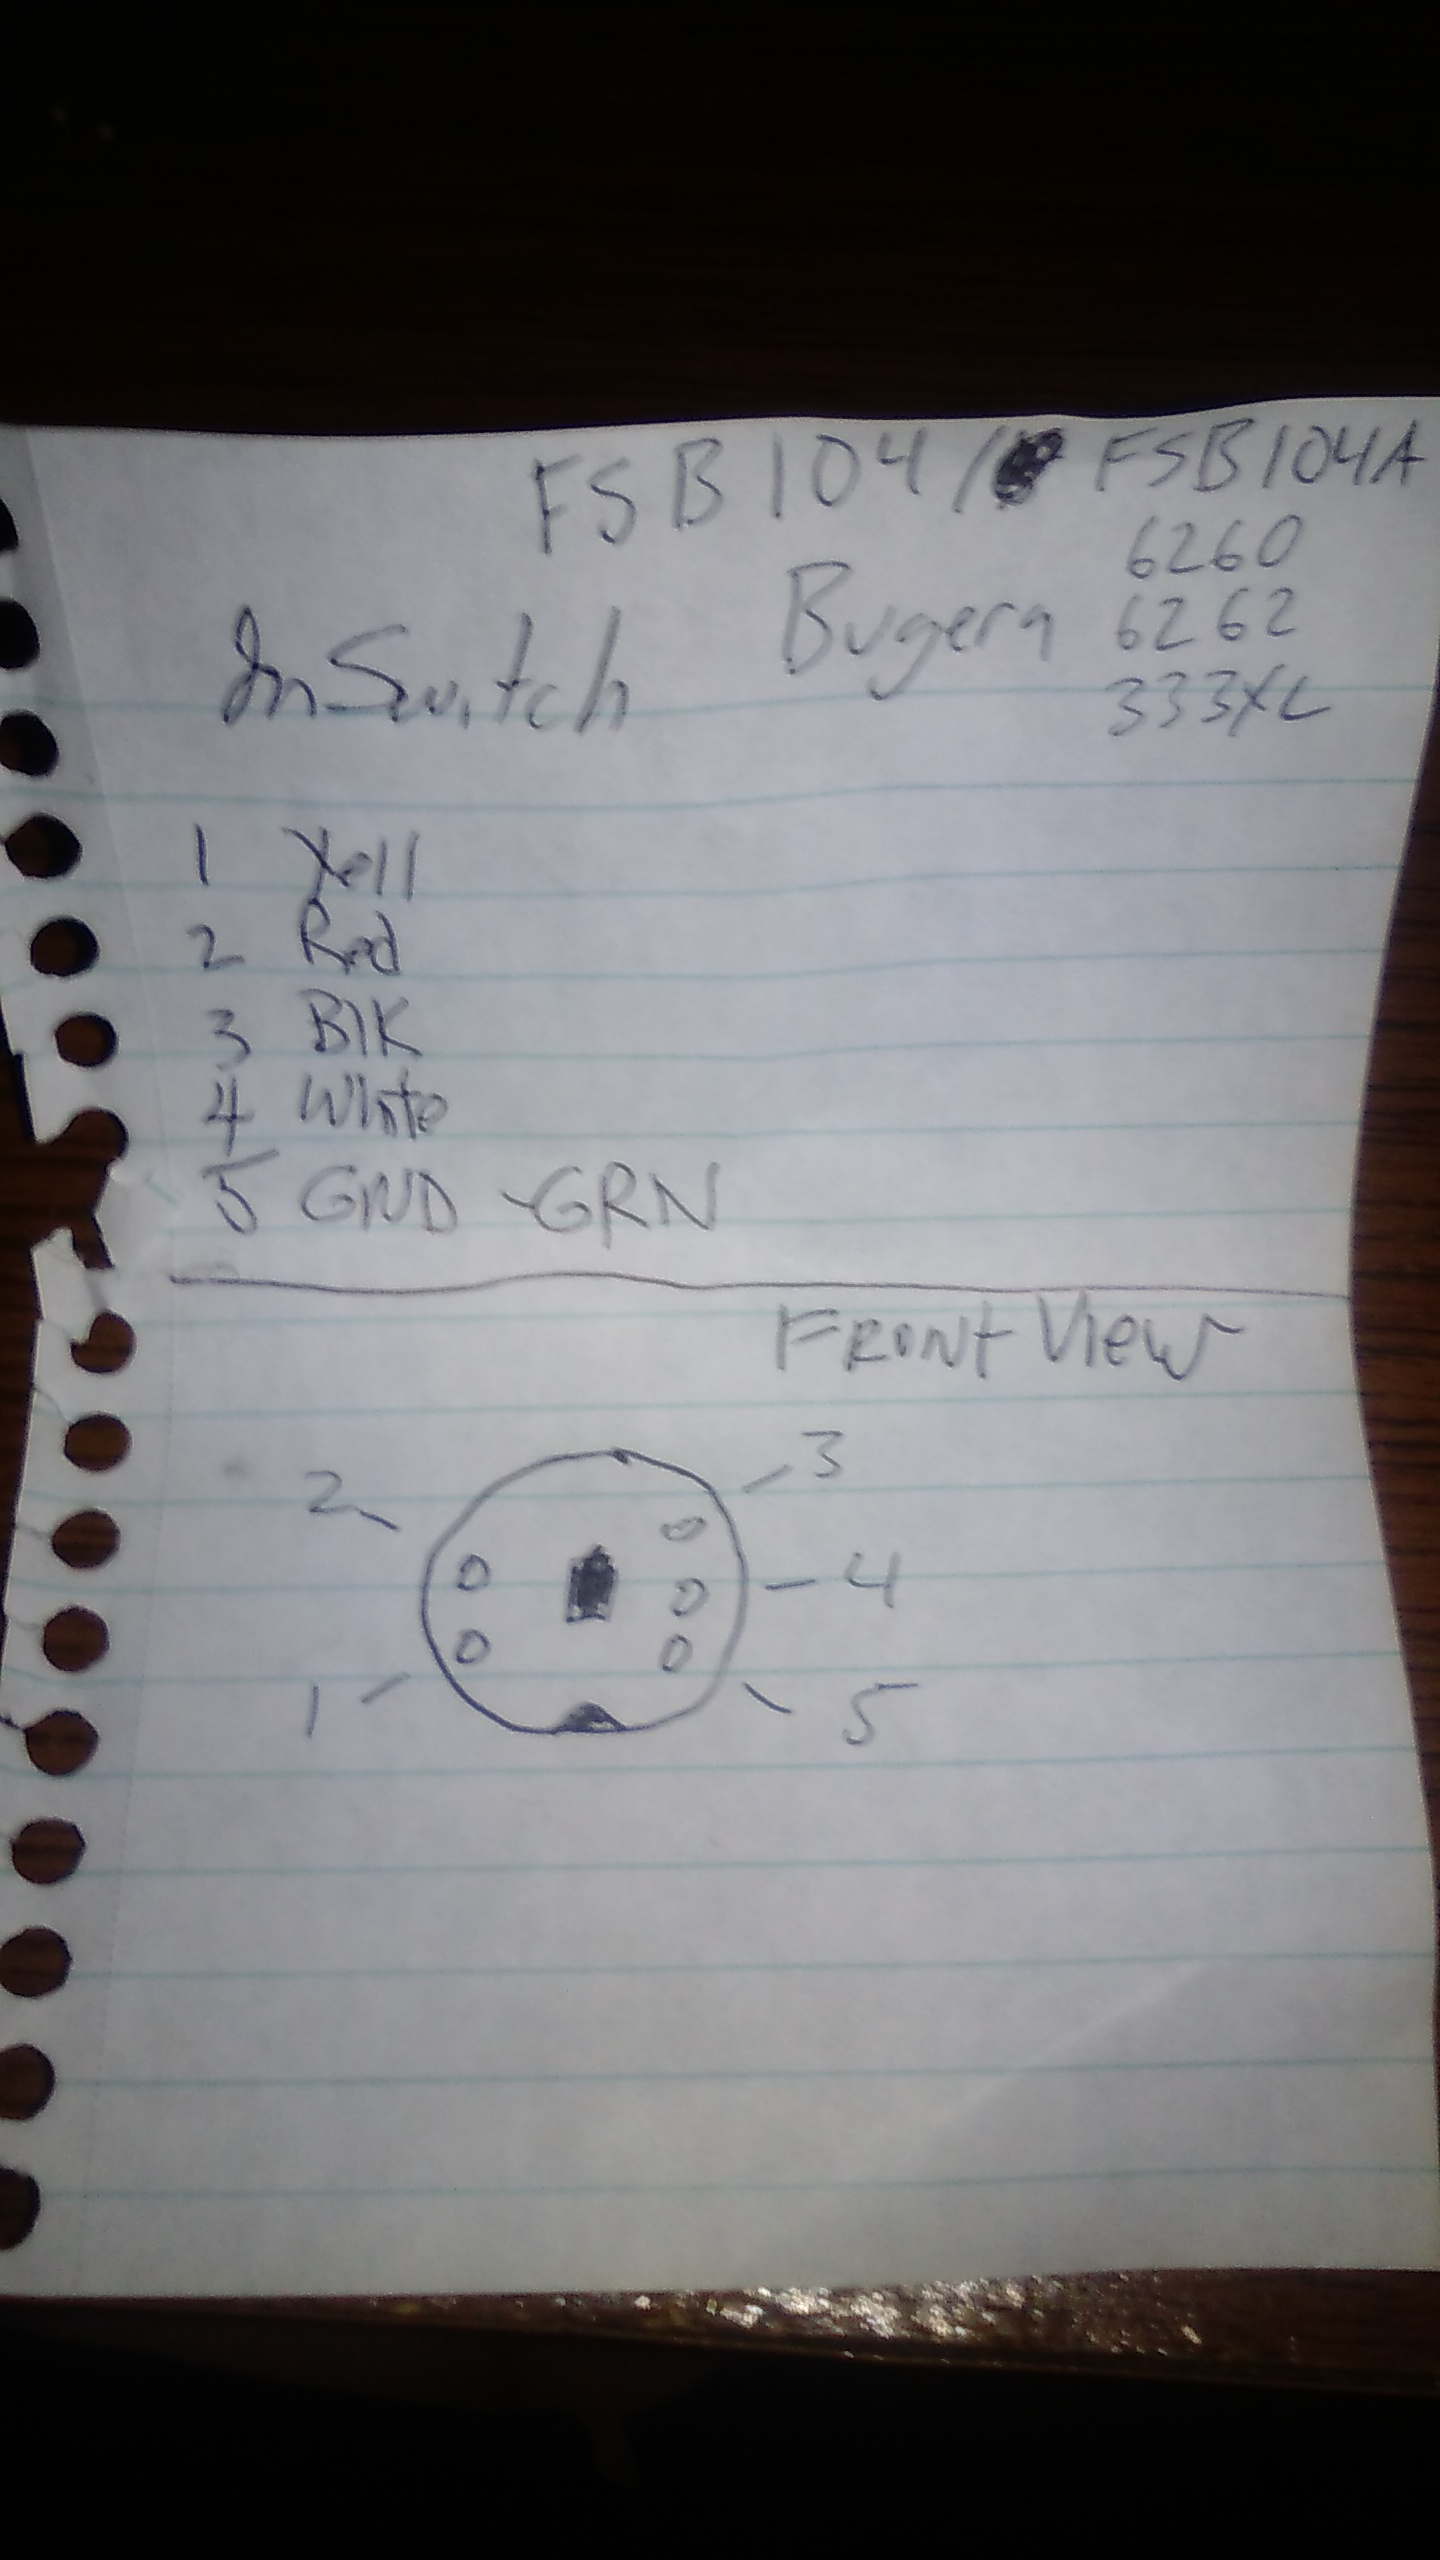 FSB104/ FSB104A
6260
InSwitch Bugera 6262
333XL
1 Yell
2 Red
3 BlK
4 White
5 GND -GRN
Front View
2 3
4
1 5